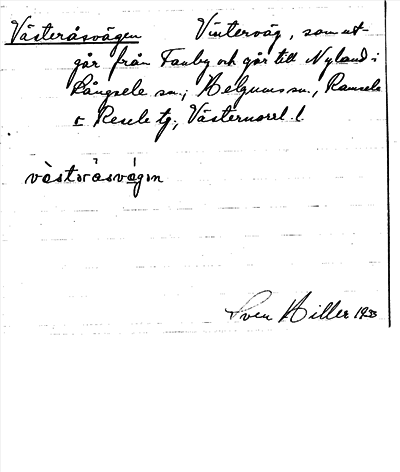 Västeråsvägen Vinterväg, som ut-
går från Tauby och går till Nyland i
Långsele sn.; Helgums sn., Ramsele
o Resele tg., Västernorrl. l.
västəråsvägən
Sven Hiller 1933